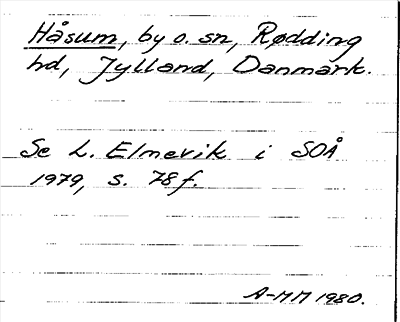 Håsum, by o. sn, Rødding
hd, Jylland, Danmark.
Se L. Elmevik i SOÅ
1979, s. 78f.
A-MM 1980.